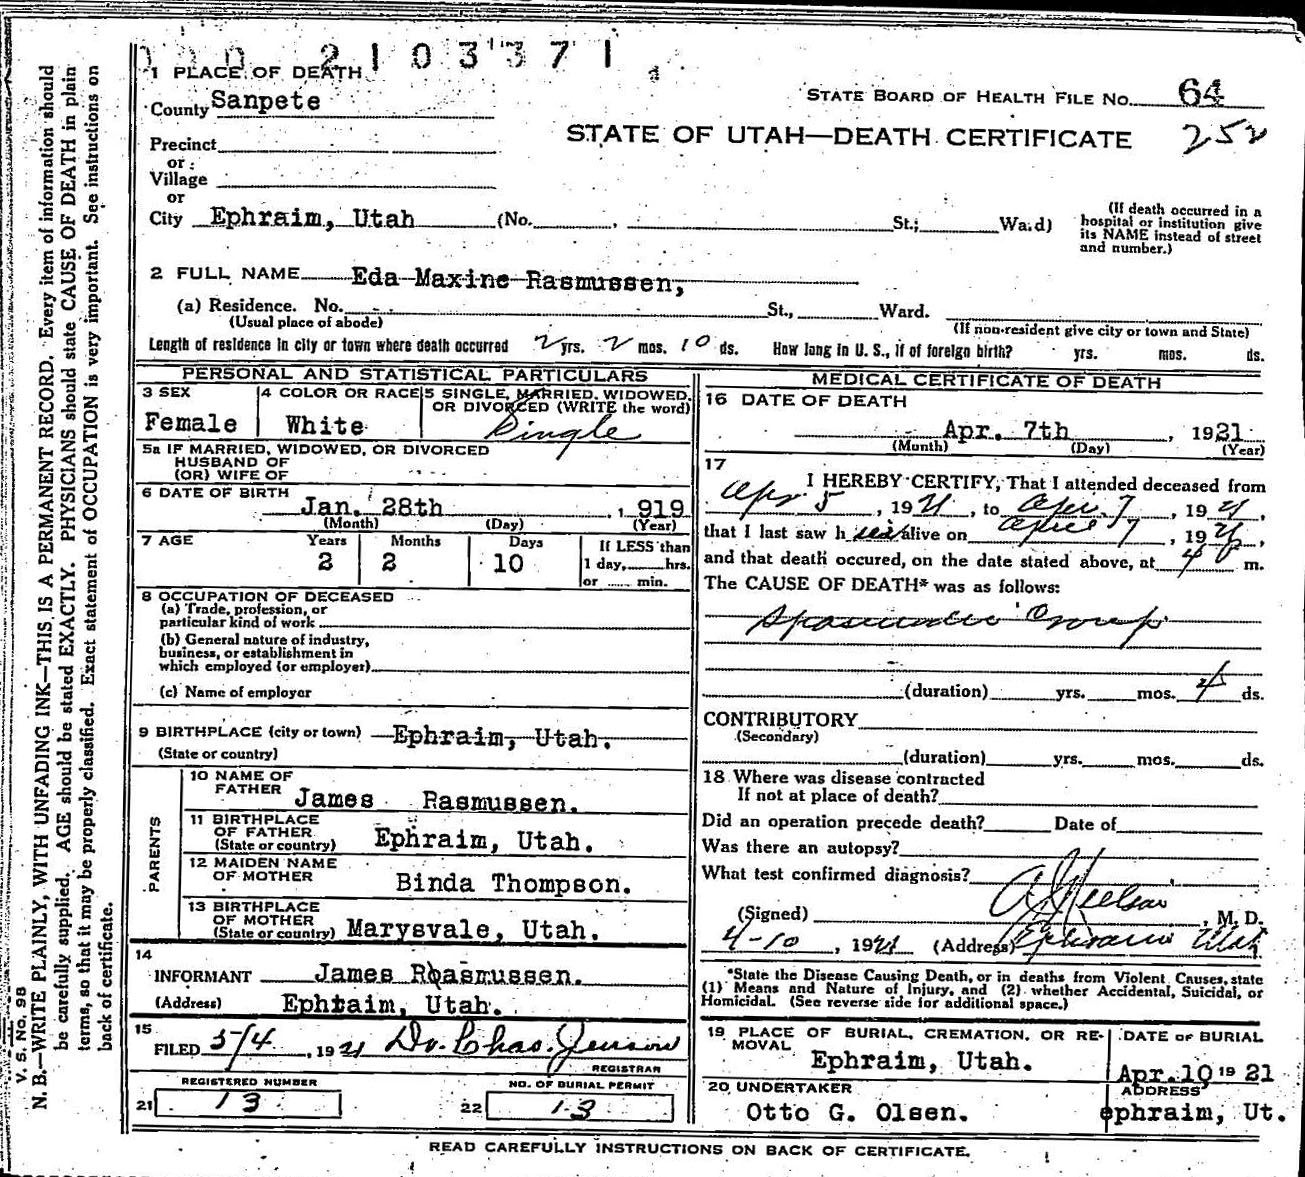 2103371
1 PLACE OF DEATH
County Sanpete
STATE BOARD OF HEALTH FILE No. 64
STATE OF UTAH—DEATH CERTIFICATE 252
Precinct
or
Village
or
City Ephraim, Utah (No. , St.; Ward)
(If death occurred in a hospital or institution give its NAME instead of street and number.)
2 FULL NAME Eda Maxine Rasmussen,
(a) Residence. No. St., Ward.
(Usual place of abode) (If non-resident give city or town and State)
Length of residence in city or town where death occurred 2 yrs. 2 mos. 10 ds. How long in U. S., if of foreign birth? yrs. mos. ds.
PERSONAL AND STATISTICAL PARTICULARS
3 SEX
Female
4 COLOR OR RACE
White
5 SINGLE, MARRIED, WIDOWED, OR DIVORCED (WRITE the word)
Single
5a IF MARRIED, WIDOWED, OR DIVORCED
HUSBAND OF
(OR) WIFE OF
6 DATE OF BIRTH
Jan. 28th , 1919
(Month) (Day) (Year)
7 AGE Years Months Days If LESS than
2 2 10 1 day, hrs.
or min.
8 OCCUPATION OF DECEASED
(a) Trade, profession, or
particular kind of work
(b) General nature of industry,
business, or establishment in
which employed (or employer)
(c) Name of employer
9 BIRTHPLACE (city or town) Ephraim, Utah.
(State or country)
PARENTS
10 NAME OF FATHER James Rasmussen.
11 BIRTHPLACE OF FATHER (State or country) Ephraim, Utah.
12 MAIDEN NAME OF MOTHER Binda Thompson.
13 BIRTHPLACE OF MOTHER (State or country) Marysvale, Utah.
14
INFORMANT James Roasmussen.
(Address) Ephraim, Utah.
15
FILED 5/4, 1921 Dr. Chas. Jenson
REGISTRAR
REGISTERED NUMBER NO. OF BURIAL PERMIT
21 13 22 13
MEDICAL CERTIFICATE OF DEATH
16 DATE OF DEATH
Apr. 7th , 1921
(Month) (Day) (Year)
17
I HEREBY CERTIFY, That I attended deceased from
Apr 5, 1921, to Apr. 7, 1921,
that I last saw her alive on April 7, 1921,
and that death occured, on the date stated above, at 4 m.
The CAUSE OF DEATH* was as follows:
Spasmodic Croup
(duration) yrs. mos. ds.
CONTRIBUTORY
(Secondary)
(duration) yrs. mos. ds.
18 Where was disease contracted
If not at place of death?
Did an operation precede death? Date of
Was there an autopsy?
What test confirmed diagnosis?
(Signed) Neelson, M. D.
4-10, 1921 (Address) Ephraim Utah
*State the Disease Causing Death, or in deaths from Violent Causes, state
(1) Means and Nature of Injury, and (2) whether Accidental, Suicidal, or
Homicidal. (See reverse side for additional space.)
19 PLACE OF BURIAL, CREMATION, OR REMOVAL
Ephraim, Utah.
DATE OF BURIAL
Apr. 10 19 21
20 UNDERTAKER
Otto G. Olsen.
ADDRESS
ephraim, Ut.
READ CAREFULLY INSTRUCTIONS ON BACK OF CERTIFICATE.
V. S. No. 98
N. B.—WRITE PLAINLY, WITH UNFADING INK—THIS IS A PERMANENT RECORD. Every item of information should
be carefully supplied. AGE should be stated EXACTLY. PHYSICIANS should state CAUSE OF DEATH in plain
terms, so that it may be properly classified. Exact statement of OCCUPATION is very important. See instructions on
back of certificate.